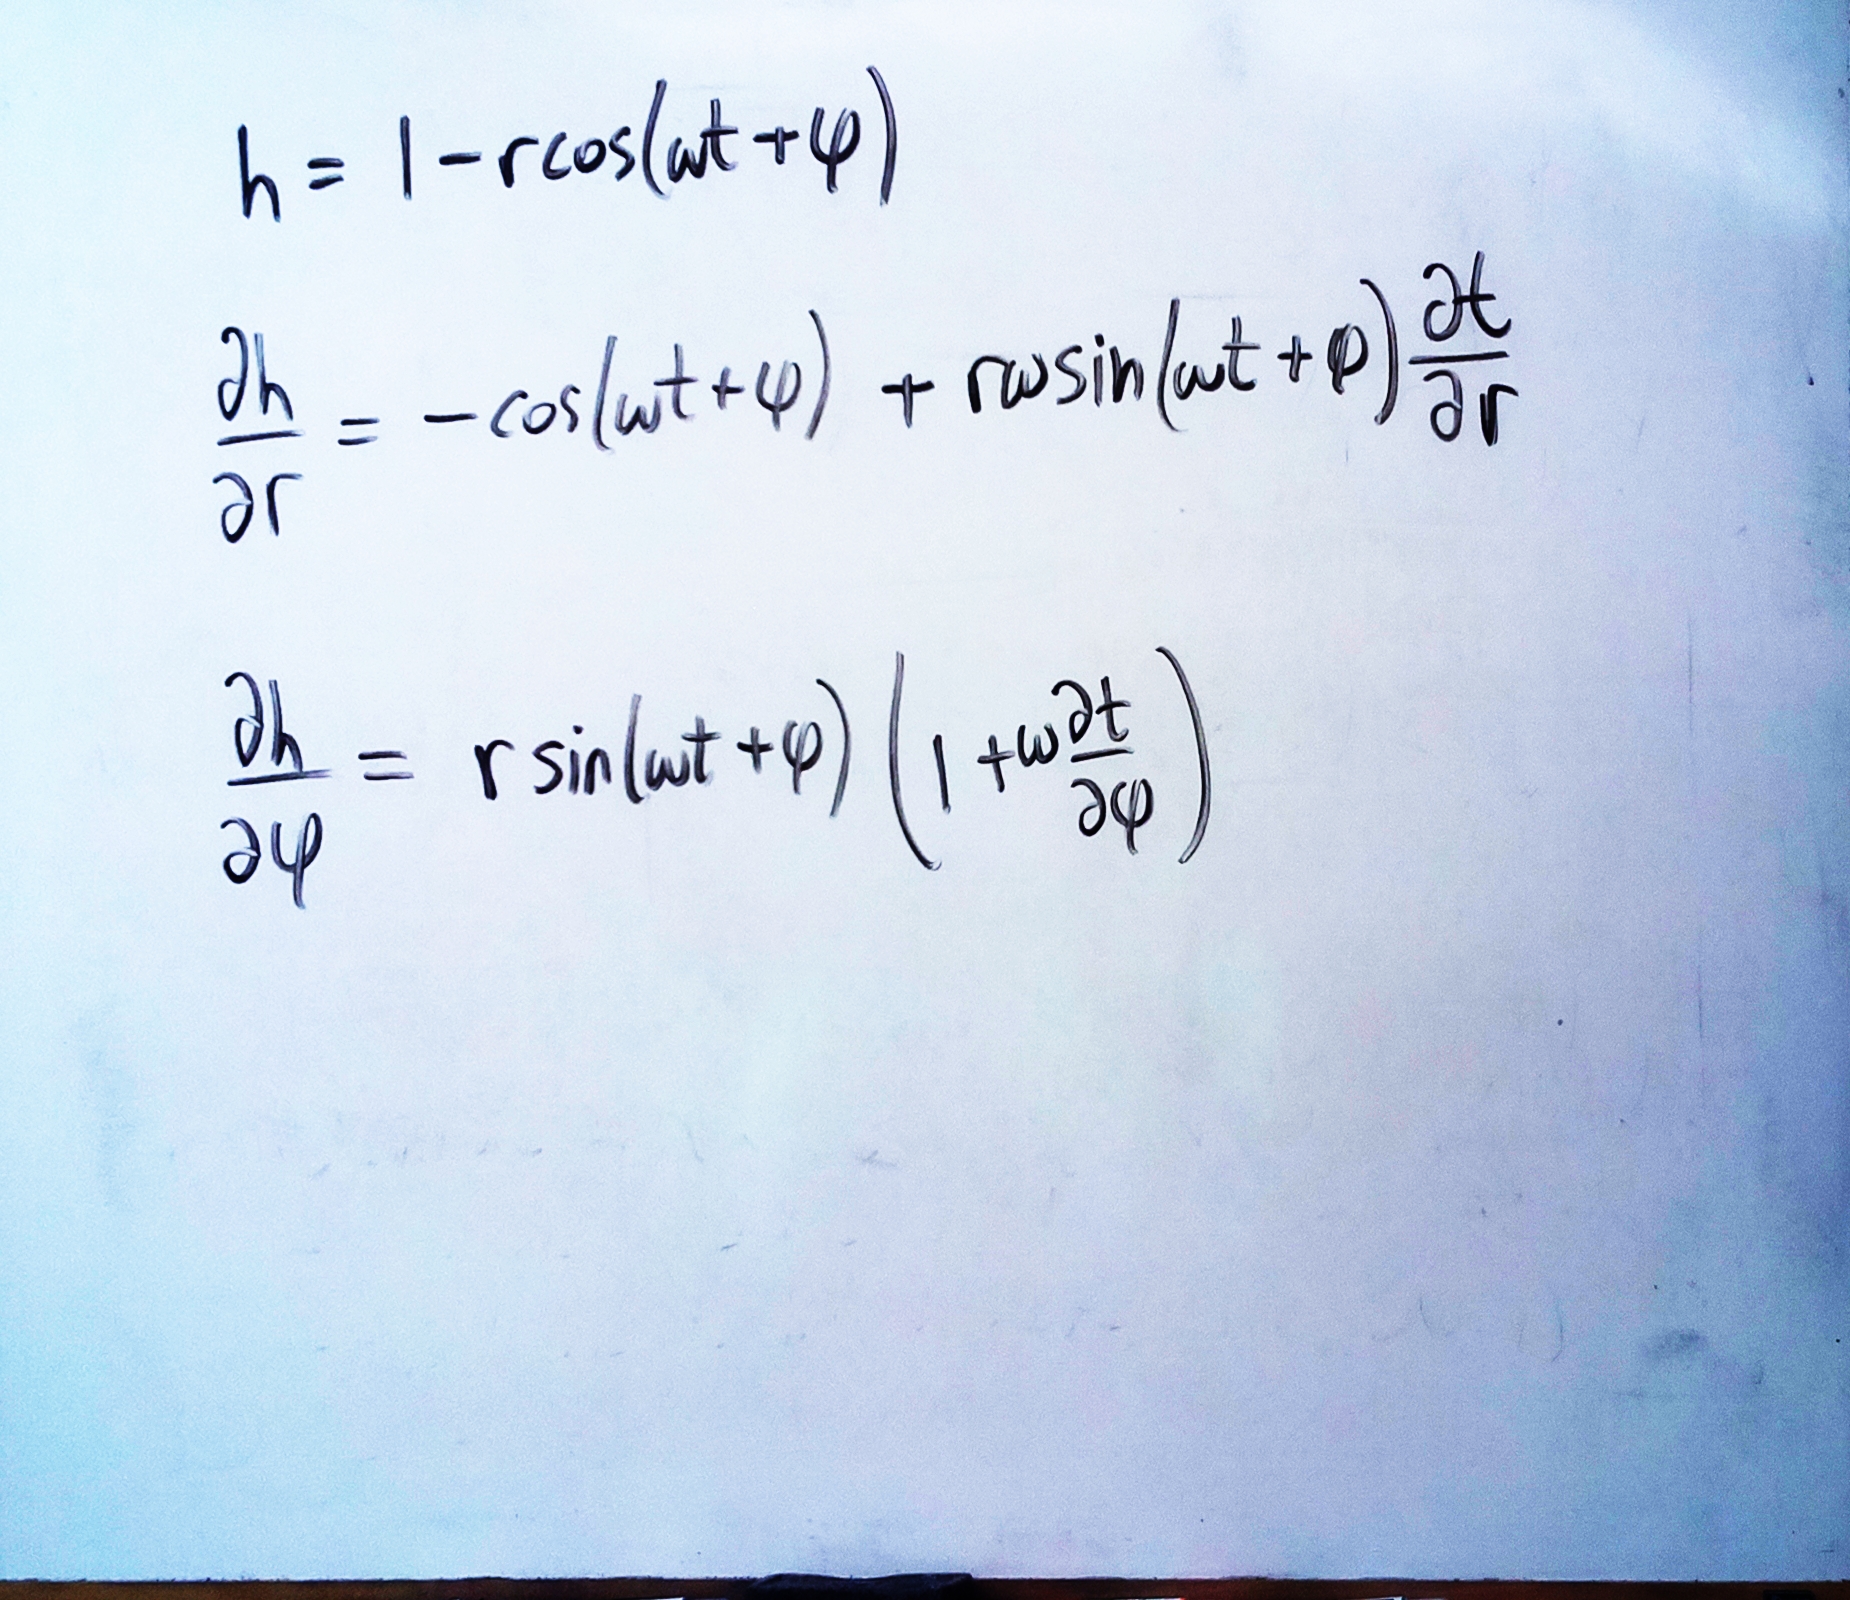 h = 1 - r cos(ωt + φ)
∂h/∂r = -cos(ωt + φ) + rω sin(ωt + φ) ∂t/∂r
∂h/∂φ = r sin(ωt + φ) (1 + ω ∂t/∂φ)